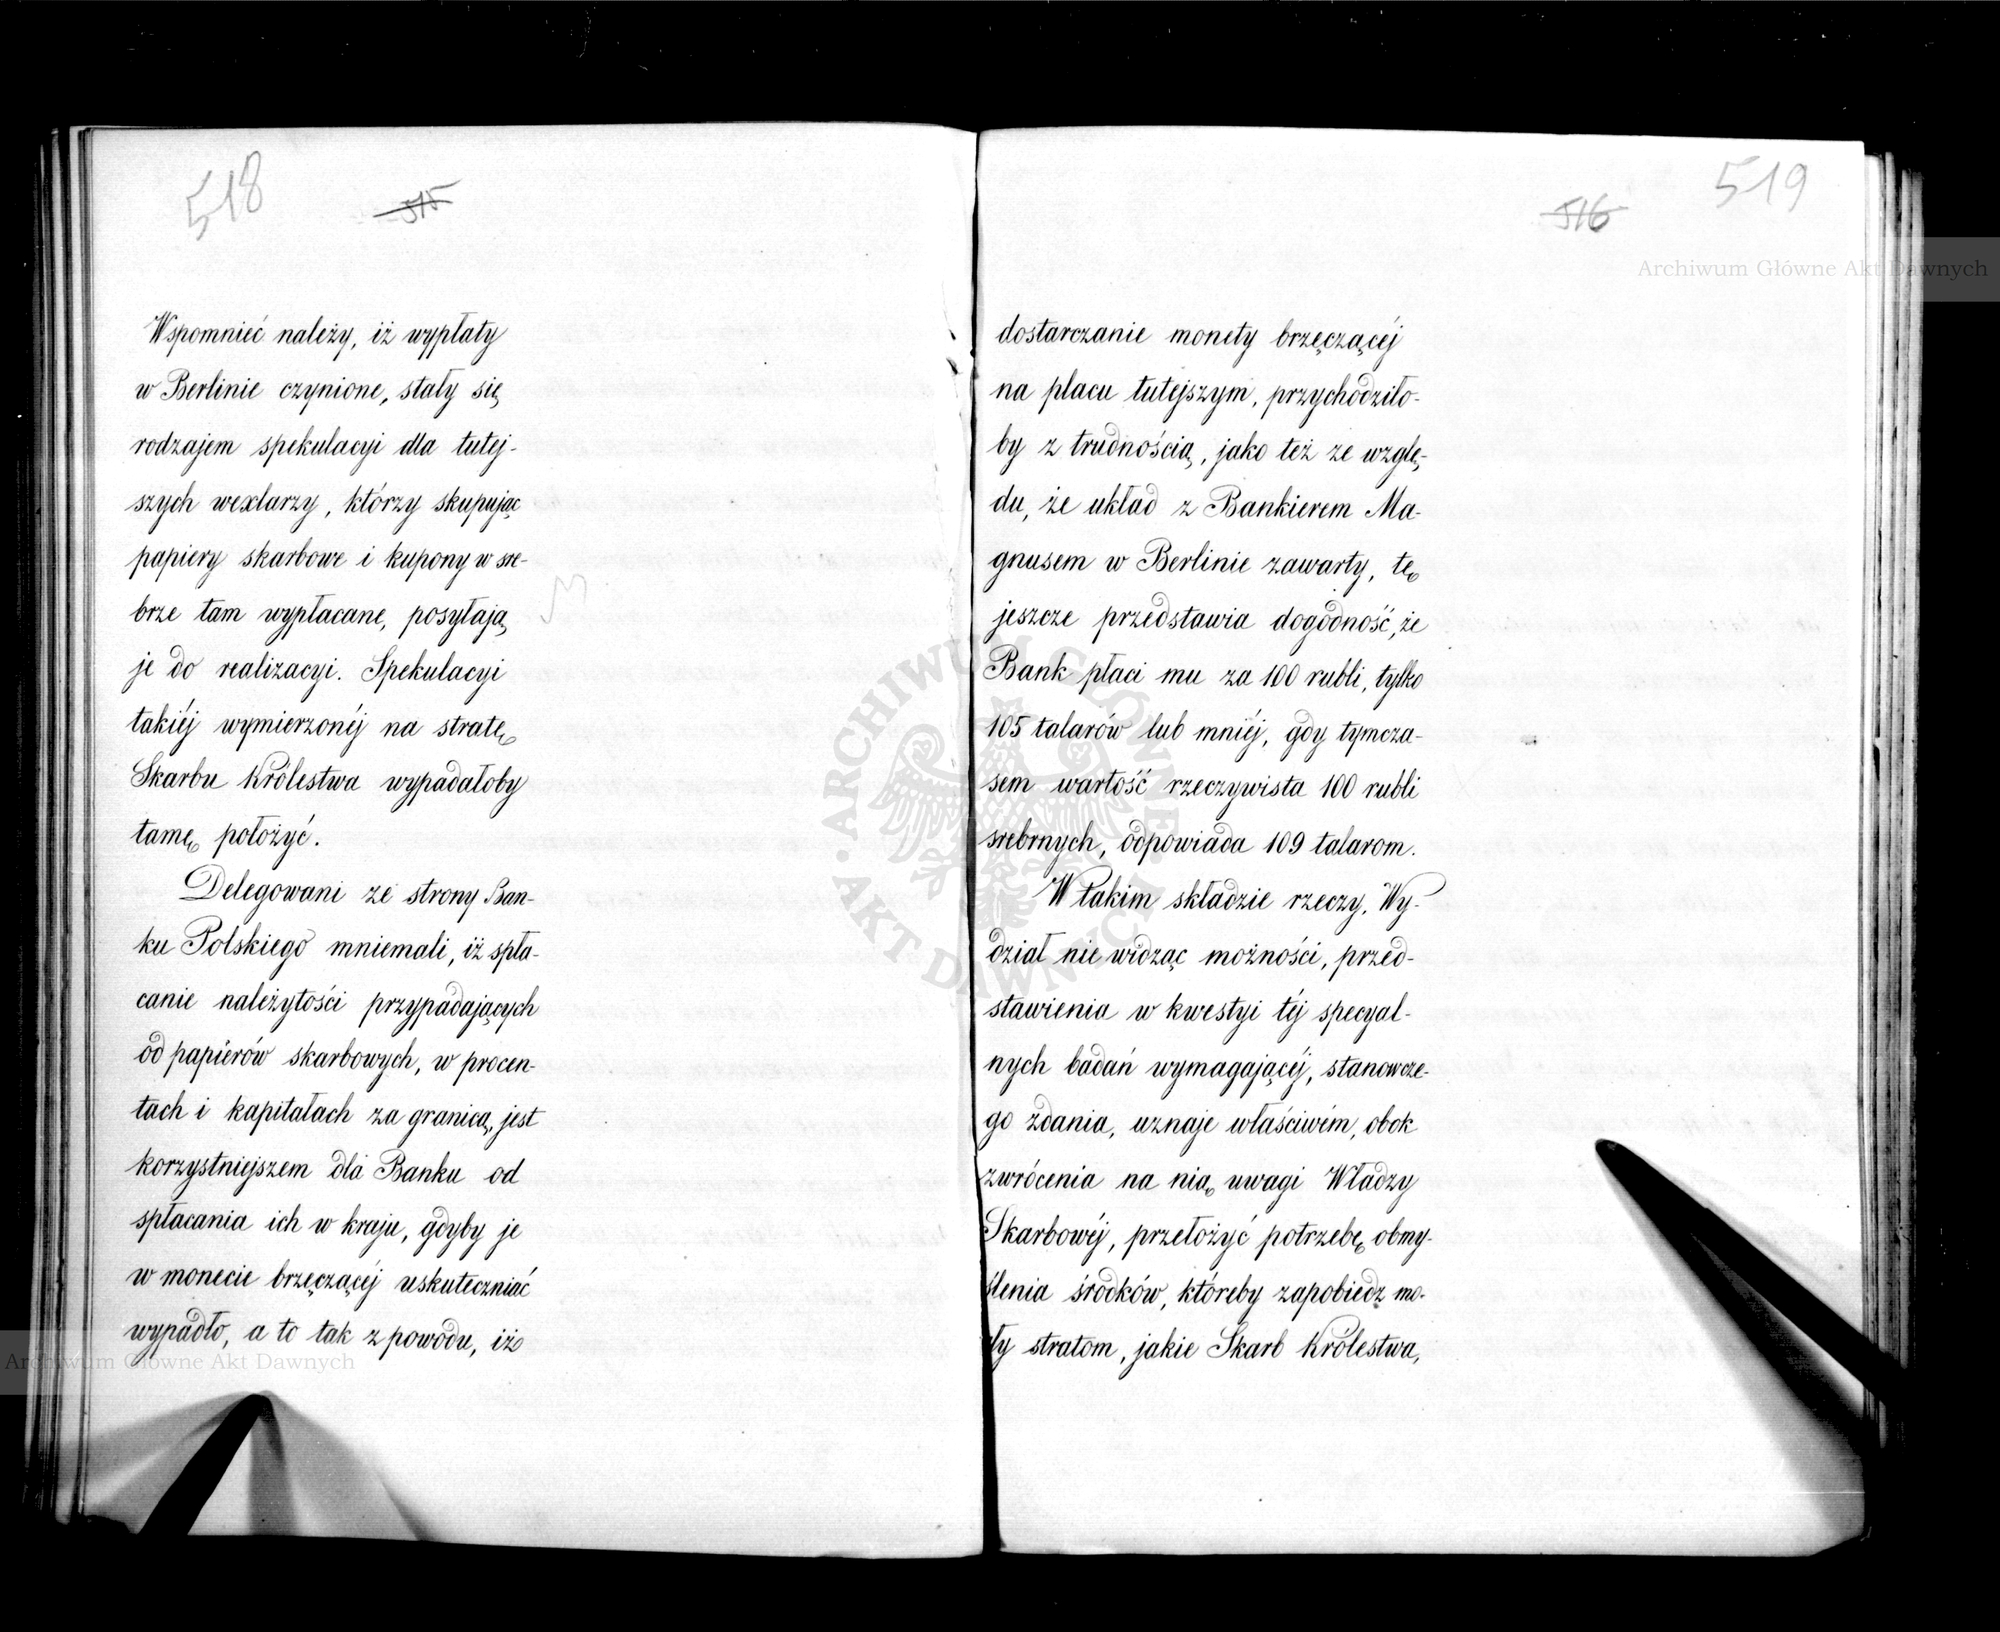 518
515
Wspomnieć należy, iż wypłaty
w Berlinie czynione, stały się
rodzajem spekulacyi dla tutej-
szych wexlarzy, którzy skupując
papiery skarbowe i kupony w sre-
brze tam wypłacane, posyłają
je do realizacyi. Spekulacyi
takiéj wymierzonéj na stratę
Skarbu Królestwa wypadałoby
tamę położyć.
Delegowani ze strony Ban-
ku Polskiego mniemali, iż spła-
canie należytości przypadających
od papiérów skarbowych, w procen-
tach i kapitałach za granicą, jest
korzystniejszem dla Banku od
spłacania ich w kraju, gdyby je
w monecie brzęczącéj uskuteczniać
wypadło, a to tak z powodu, iż
519
516
dostarczanie monety brzęczącéj
na placu tutejszym, przychodziło-
by z trudnością, jako też ze wzglę-
du, że układ z Bankierem Ma-
gnusem w Berlinie zawarty, tę
jeszcze przedstawia dogodność, że
Bank płaci mu za 100 rubli, tylko
105 talarów lub mniéj, gdy tymcza-
sem wartość rzeczywista 100 rubli
srebrnych, odpowiada 109 talarom.
W takim składzie rzeczy, Wy-
dział nie widząc możności, przed-
stawienia w kwestyi téj specyal-
nych badań wymagającéj, stanowcze-
go zdania, uznaje właściwém, obok
zwrócenia na nią uwagi Władzy
Skarbowéj, przełożyć potrzebę obmy-
ślenia środków, któreby zapobiedz mo-
gły stratom, jakie Skarb Królestwa,
Archiwum Główne Akt Dawnych
Archiwum Główne Akt Dawnych
ARCHIWUM GŁÓWNE
AKT DAWNYCH